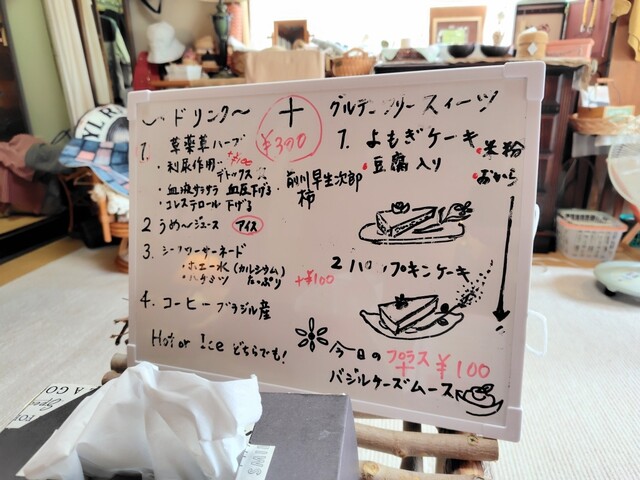 〜ドリンク〜 + グルテンフリースイーツ
¥300
1. 草薬草ハーブ
・利尿作用・
デトックス
・血液サラサラ 血圧下げる・
・コレステロール下げる
前川早生次郎
柿
2 うめ〜ジュース アイス
3. シークワーサーネード
・ホエー水(カルシウム)
・ハチミツ たっぷり +¥100
4. コーヒーブラジル産
Hot or Ice どちらでも!
1. よもぎケーキ
・豆腐入り
・米粉
・おから
2 パンプキンケーキ
今日の プラス + ¥100
バジルチーズムース
YLR